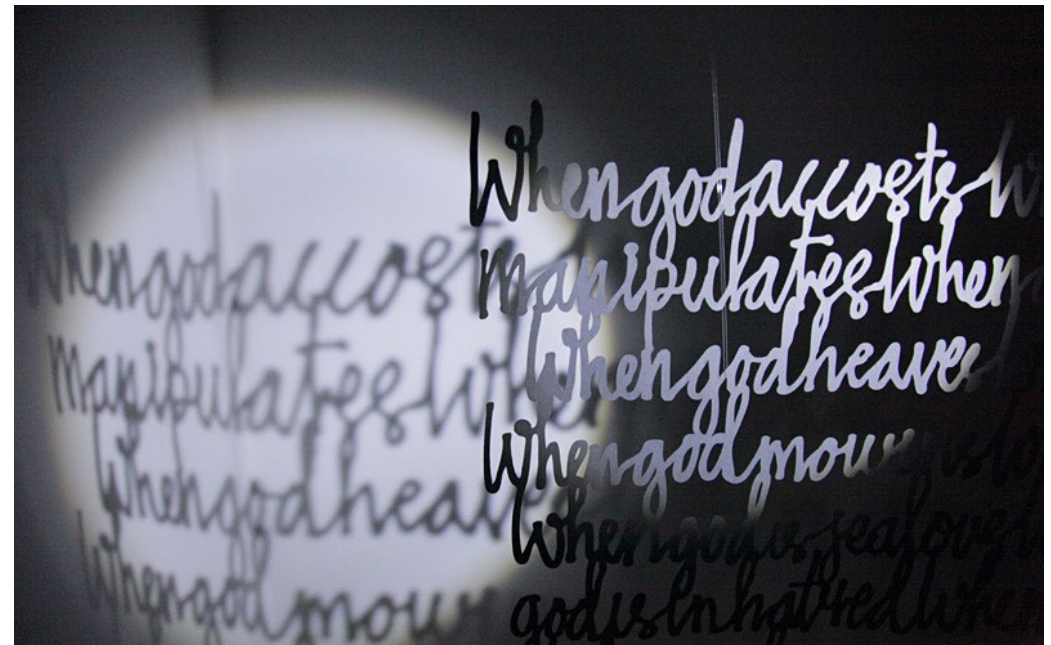 Whengodaccosts
manipulatesWhen
Whengodheaves
Whengodmourns
Whengodisjealous
godisinhatredWhen
Whengodaccosts
manipulates
Whengodheave
Whengodmour